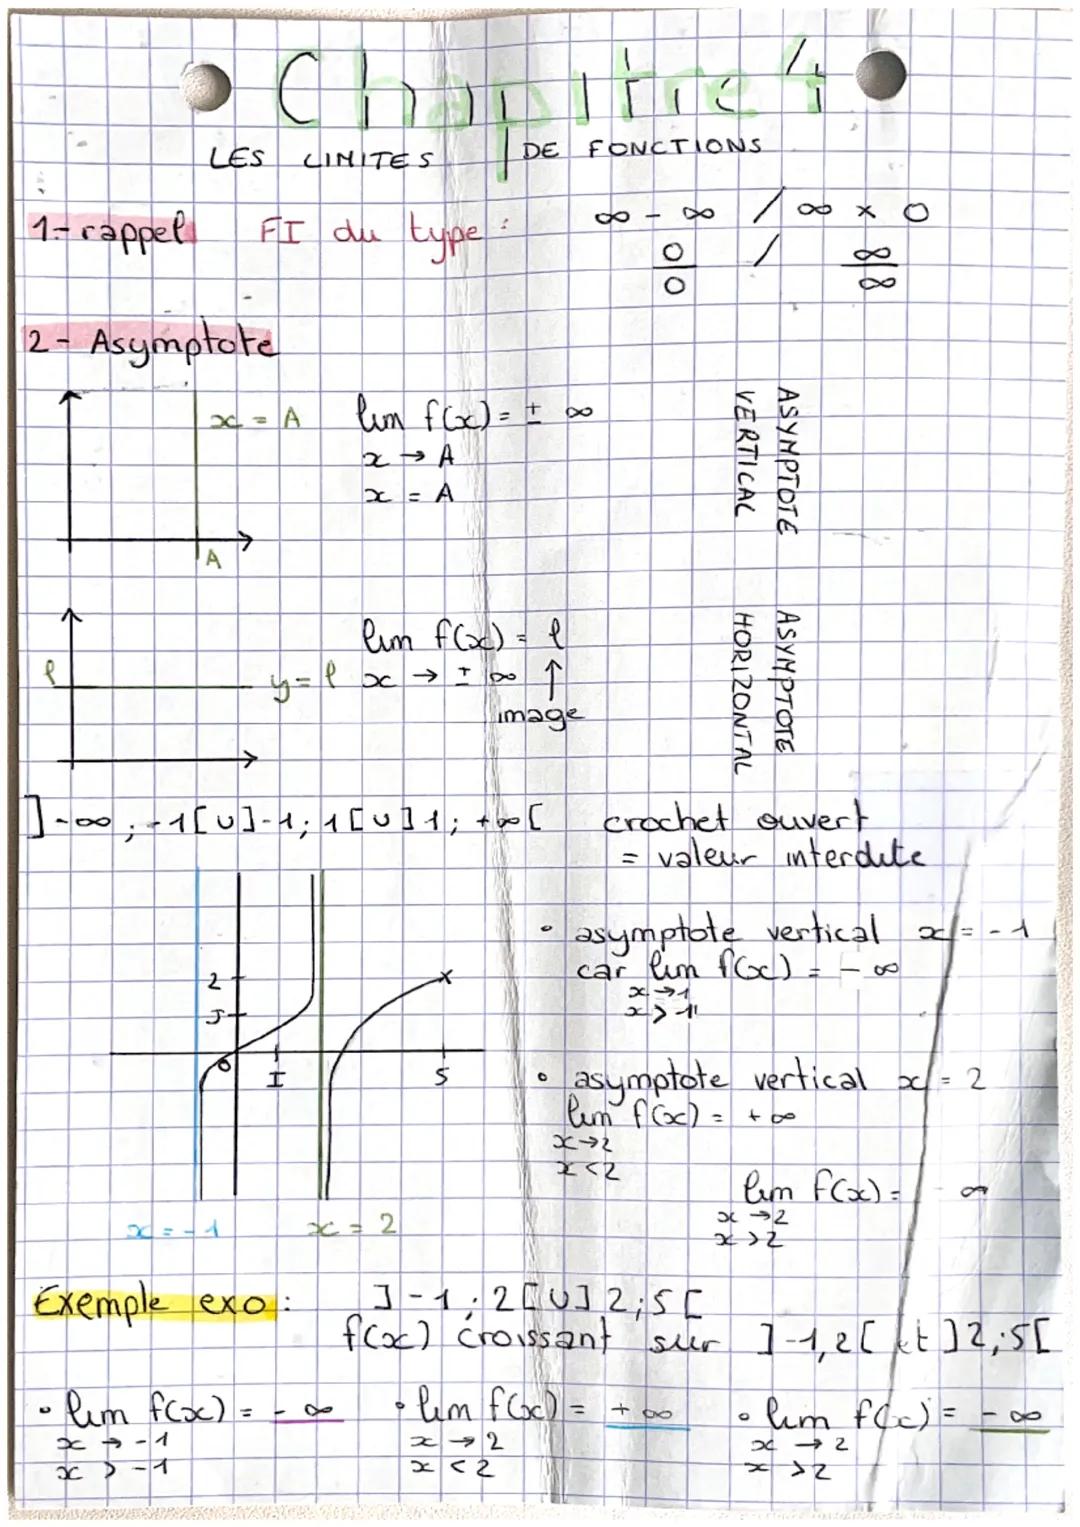 Chapitre 4
LES LIMITES DE FONCTIONS
1- rappel FI du type : ∞ - ∞ / ∞ x 0
0/0 / ∞/∞
2- Asymptote
x = A
lim f(x) = ± ∞
x → A
x = A
A
ASYMPTOTE
VERTICAL
lim f(x) = l
l
y = l
x → ± ∞ ↑
image
ASYMPTOTE
HORIZONTAL
]-∞ ; -1[U]-1; 1[U]1; +∞[ crochet ouvert
= valeur interdite
2
J
0
I
5
x = -1
x = 2
• asymptote vertical x = -1
car lim f(x) = - ∞
x → 1
x > -1
• asymptote vertical x = 2
lim f(x) = + ∞
x → 2
x < 2
lim f(x) = - ∞
x → 2
x > 2
Exemple exo : ]-1; 2[U]2; 5[
f(x) croissant sur ]-1, 2[ et ]2; 5[
• lim f(x) = - ∞
x → -1
x > -1
• lim f(x) = + ∞
x → 2
x < 2
• lim f(x) = - ∞
x → 2
x > 2